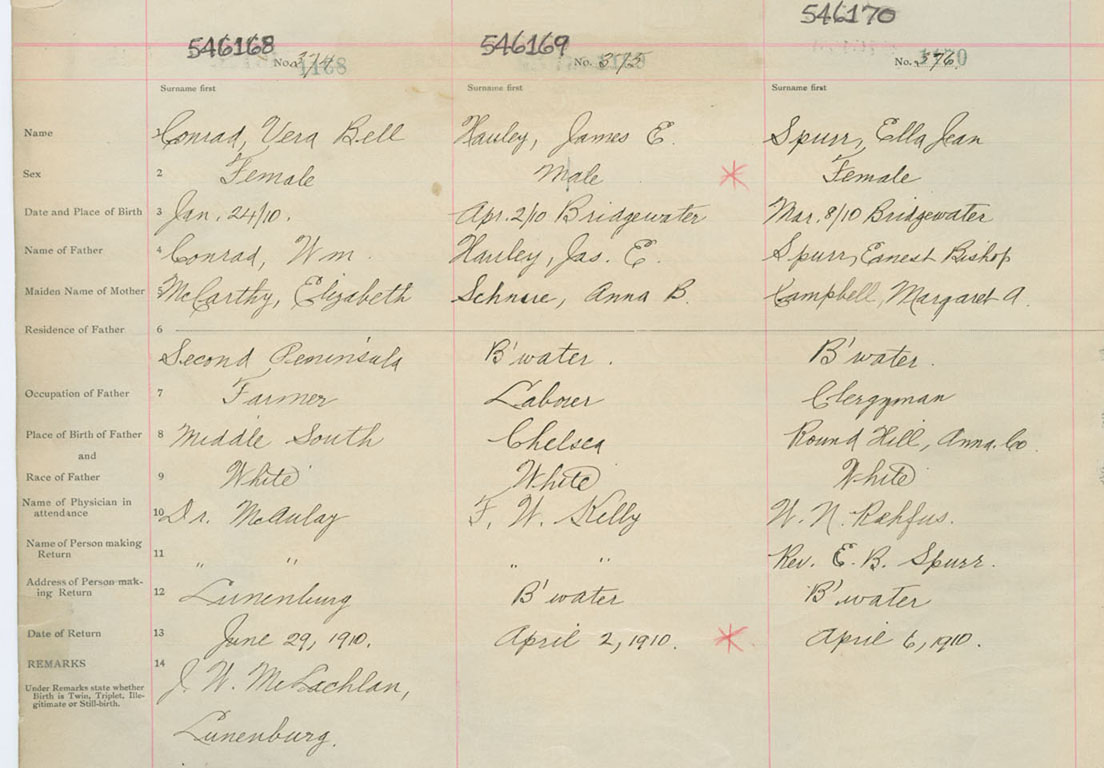 546168 546169 546170
No. 374 No. 375 No. 376
Surname first Surname first Surname first
Name 1 Conrad, Vera Bell Hauley, James E. Spurr, Ella Jean
Sex 2 Female Male Female
Date and Place of Birth 3 Jan. 24/10. Apr. 2/10 Bridgewater Mar. 8/10 Bridgewater
Name of Father 4 Conrad, Wm. Hauley, Jas. E. Spurr, Ernest Bishop
Maiden Name of Mother 5 McCarthy, Elizabeth Schnare, Anna B. Campbell, Margaret A.
Residence of Father 6
Second Peninsula B'water. B'water.
Occupation of Father 7 Farmer Laborer Clergyman
Place of Birth of Father 8 Middle South Chelsea Round Hill, Anna. Co.
and
Race of Father 9 White White White
Name of Physician in
attendance 10 Dr. McAulay F. W. Kelly W. N. Rehfus.
Name of Person making
Return 11 " " " " Rev. E. B. Spurr.
Address of Person mak-
ing Return 12 Lunenburg B'water B'water
Date of Return 13 June 29, 1910. April 2, 1910. April 6, 1910.
REMARKS 14
Under Remarks state whether
Birth is Twin, Triplet, Ille-
gitimate or Still-birth.
J. W. McLachlan,
Lunenburg.